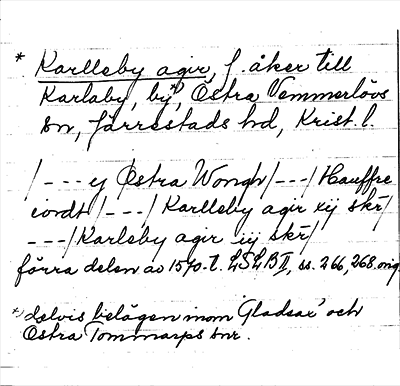 * Karlleby agir, f. åker till
Karlaby, by*), Östra Vemmerlövs
sn, Järrestads hd, Krist. l.
/--- ey Østra Wongh/---/Hauffre
iordt/---/Karlleby agir xij skr/
---/Karleby agir iij skr/
förra delen av 1570-t. LSLB II, ss. 266, 268. orig.
*) delvis belägen inom Gladsax' och
Östra Tommarps snr.